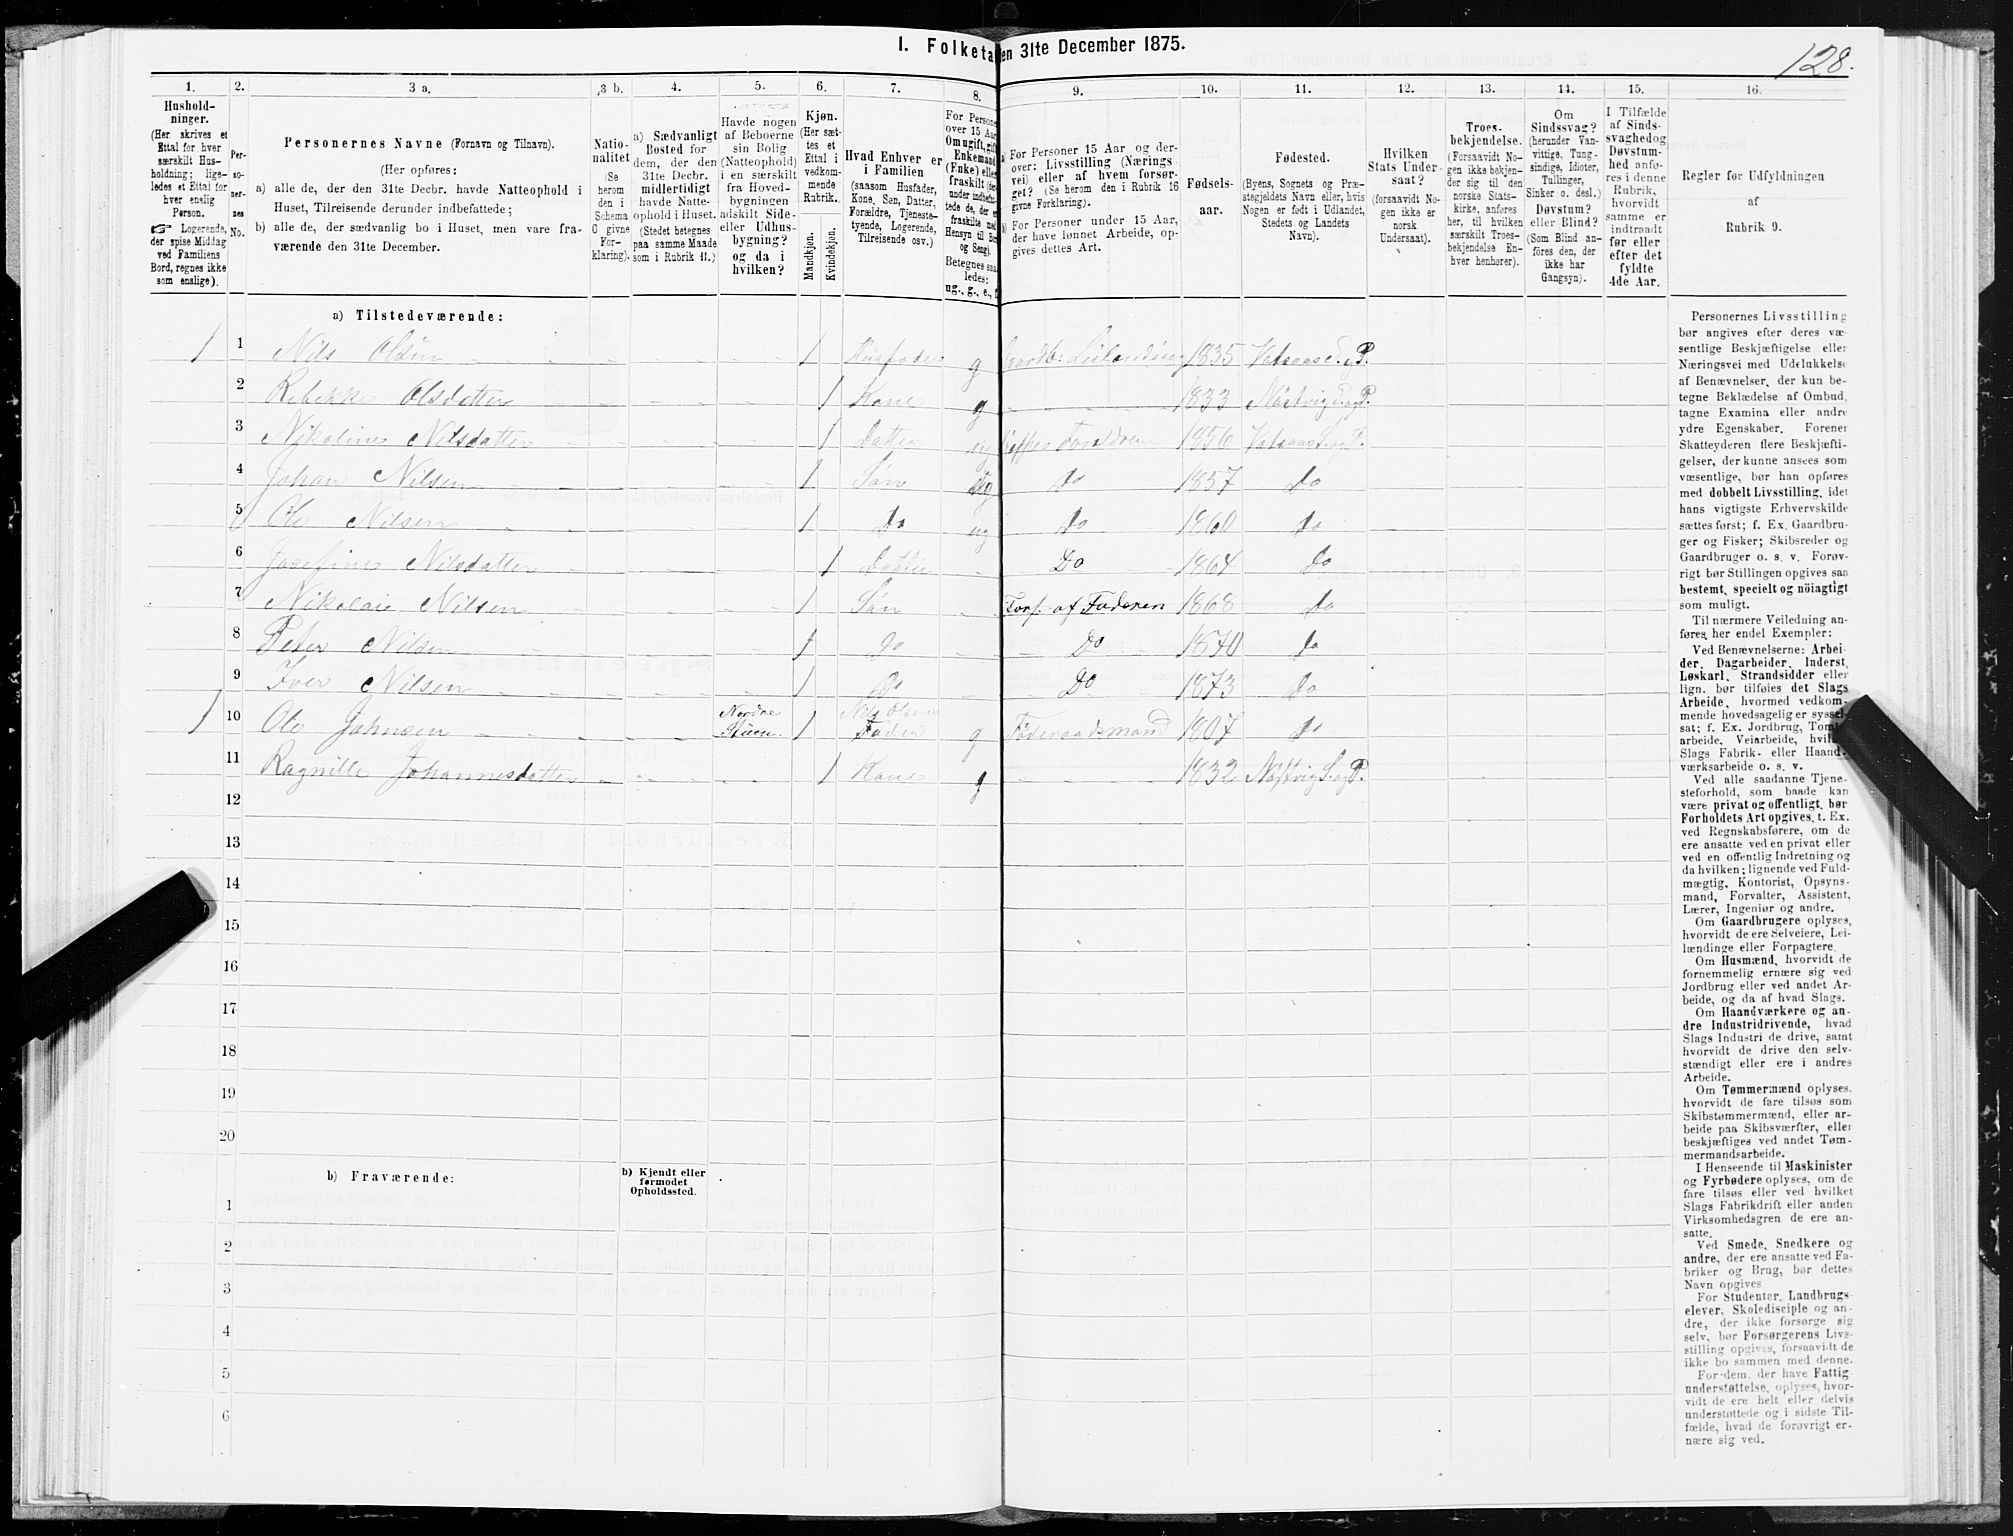 I. Folketa en 31te December 1875.
128.
1. 2. 3 a. 3 b. 4. 5. 6. 7. 8. 9. 10. 11. 12. 13. 14. 15. 16.
Hushold-
ninger.
(Her skrives et
Ettal for hver
særskilt Hus-
holdning; lige-
ledes et Ettal for
hver enslig
Person.
☞ Logerende,
der spise Middag
ved Familiens
Bord, regnes ikke
som enslige).
Per-
so-
ner-
nes
No.
Personernes Navne (Fornavn og Tilnavn).
(Her opføres:
a) alle de, der den 31te Decbr. havde Natteophold i
Huset, Tilreisende derunder indbefattede;
b) alle de, der sædvanlig bo i Huset, men vare fra-
værende den 31te December.
Natio-
nalitet
(Se
herom
den i
Schema
C givne
For-
klaring).
a) Sædvanligt
Bosted for
dem, der den
31te Decbr.
midlertidigt
havde Natte-
ophold i Huset.
(Stedet betegnes
paa samme Maade
som i Rubrik 11.)
Havde nogen
af Beboerne
sin Bolig
(Natteophold)
i en særskilt
fra Hoved-
bygningen
adskilt Side-
eller Udhus-
bygning?
og da i
hvilken?
Kjøn.
(Her sæt-
tes et
Ettal i
vedkom-
mende
Rubrik.
Mandkjøn.
Kvindekjøn.
Hvad Enhver er
i Familien
(saasom Husfader,
Kone, Søn, Datter,
Forældre, Tjeneste-
tyende, Logerende,
Tilreisende osv.)
For Persone
over 15 Aar
Om ugift, gift
Enkemand
(Enke) eller
fraskilt (der-
under indbefat-
tede de, der e
fraskilte med
Hensyn til Bo
og Seng).
Betegnes saa
ledes:
ug., g., e., f
a) For Personer 15 Aar og der-
over: Livsstilling (Nærings-
vei) eller af hvem forsør-
get? (Se herom den i Rubrik 16
givne Forklaring).
b) For Personer under 15 Aar,
der have lønnet Arbeide, op-
gives dettes Art.
Fødsels-
aar.
Fødested.
(Byens, Sognets og Præ-
stegjeldets Navn eller, hvis
Nogen er født i Udlandet,
Stedets og Landets
Navn).
Hvilken
Stats Under-
saat?
(forsaavidt No-
gen ikke er
norsk
Undersaat).
Troes-
bekjendelse.
(Forsaavidt No-
gen ikke bekjen-
der sig til den
norske Stats-
kirke, anføres
her, til hvilken
særskilt Troes-
bekjendelse En-
hver henhører).
Om
Sindssvag?
(herunder Van-
vittige, Tung-
sindige, Idioter,
Tullinger,
Sinker o. desl.)
Døvstum?
eller Blind?
(Som Blind an-
føres den, der
ikke har
Gangsyn).
I Tilfælde
af Sinds-
svaghed og
Døvstum-
hed anfø-
res i denne
Rubrik,
hvorvidt
samme er
indtraadt
før eller
efter det
fyldte
4de Aar.
Regler for Udfyldningen
af
Rubrik 9.
a) Tilstedeværende:
1 1 Nils Olsen 1 Husfader g Gaardb: Leilænding 1835 Vefsens S. og P.
2 Rebekka Olsdatter 1 Kone g 1833 Næstvig S. og P.
3 Nikoline Nilsdatter 1 Datter ug Forældrene 1856 Vefsens S. og P.
4 Johan Nilsen 1 Søn ug Do 1857 Do
5 Ole Nilsen 1 Do ug Do 1860 Do
6 Josefine Nilsdatter 1 Datter Do 1864 Do
7 Nikolai Nilsen 1 Søn Fors. af Faderen 1868 Do
8 Peter Nilsen 1 Do Do 1870 Do
9 Iver Nilsen 1 Do Do 1873 Do
1 10 Ole Johnsen Nordre Stuen. 1 Nils Olsens Fader g Føderaadsmand 1807 Do
11 Ragnille Johannesdatter 1 Kone g 1832 Næstvig S. og P.
12
13
14
15
16
17
18
19
20
b) Fraværende:
b) Kjendt eller
formodet
Opholdssted.
1
2
3
4
5
6
Personernes Livsstilling
bør angives efter deres væ-
sentlige Beskjæftigelse eller
Næringsvei med Udelukkelse
af Benævnelser, der kun be-
tegne Beklædelse af Ombud,
tagne Examina eller andre
ydre Egenskaber. Forener
Skatteyderen flere Beskjæfti-
gelser, der kunne ansees som
væsentlige, bør han opføres
med dobbelt Livsstilling, idet
hans vigtigste Erhvervskilde
sættes først; f. Ex. Gaardbru-
ger og Fisker; Skibsreder og
Gaardbruger o. s. v. Forøv-
rigt bør Stillingen opgives saa
bestemt, specielt og nøiagtigt
som muligt.
Til nærmere Veiledning an-
føres her endel Exempler:
Ved Benævnelserne: Arbei-
der, Dagarbeider, Inderst,
Løskarl, Strandsidder eller
lign. bør tilføies det Slags
Arbeide, hvormed vedkom-
mende hovedsagelig er syssel-
sat; f. Ex. Jordbrug, Tomt-
arbeide, Veiarbeide, hvil
Slags Fabrik- eller Haand-
værksarbeide o. s. v.
Ved alle saadanne Tjene-
steforhold, som baade kan
være privat og offentligt, bør
Forholdets Art opgives, t. Ex.
ved Regnskabsførere, om de
ere ansatte ved en privat eller
ved en offentlig Indretning og
da hvilken; lignende ved Fuld-
mægtig, Kontorist, Opsyns-
mand, Forvalter, Assistent,
Lærer, Ingeniør og andre.
Om Gaardbrugere oplyses,
hvorvidt de ere Selveiere, Lei-
lændinge eller Forpagtere.
Om Husmænd, hvorvidt de
fornemmelig ernære sig ved
Jordbrug eller ved andet Ar-
beide, og da af hvad Slags.
Om Haandværkere og an-
dre Industridrivende, hvad
Slags Industri de drive, samt
hvorvidt de drive den selv-
stændigt eller ere i andres
Arbeide.
Om Tømmermænd oplyses,
hvorvidt de fare tilsøs som
Skibstømmermænd, eller ar-
beide paa Skibsværfter, eller
beskjæftiges ved andet Tøm-
mermandsarbeide.
I Henseende til Maskinister
og Fyrbødere oplyses, om de
fare tilsøs eller ved hvilket
Slags Fabrikdrift eller anden
Virksomhedsgren de ere an-
satte.
Ved Smede, Snedkere og
andre, der ere ansatte ved Fa-
briker og Brug, bør dettes
Navn opgives
For Studenter, Landbrugs-
elever, Skoledisciple og an-
dre, der ikke forsørge sig
selv, bør Forsørgerens Livs-
stilling opgives, forsaavidt de
ikke bo sammen med denne.
For dem, der have Fattig-
understøttelse, oplyses, hvor-
vidt de ere helt eller delvis
understøttede og i sidste Til-
fælde, hvad de forøvrigt er-
nære sig ved.